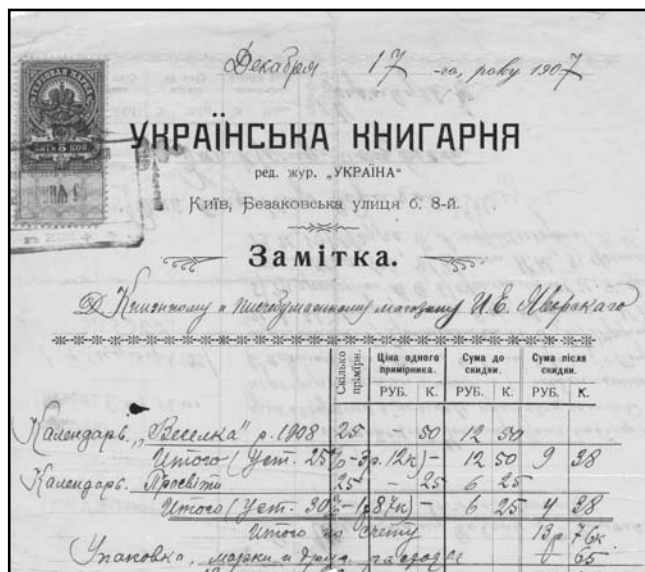 Декабря 17 -го, року 1907
ГЕРБОВАЯ МАРКА
ПЯТЬ 5 КОП.
УКРАЇНСЬКА КНИГАРНЯ
ред. жур. „УКРАЇНА“
Київ, Безаковська улиця б. 8-й.
Замітка.
Д. Книжному и писчебумажному магазину И. Е. Яворскаго
Скілько примірн. Ціна одного примірника. Сума до скидки. Сума після скидки.
РУБ. К. РУБ. К. РУБ. К.
Календарь „Веселка“ р. 1908 25 – 50 12 50
Итого (Уст. 25% – 3р. 12к) – 12 50 9 38
Календарь Просвіти 25 – 25 6 25
Итого (Уст. 30% – 1р 87к) – 6 25 4 38
Итого по счету 13р 76к
Упаковка, марки и друг. расходы 65